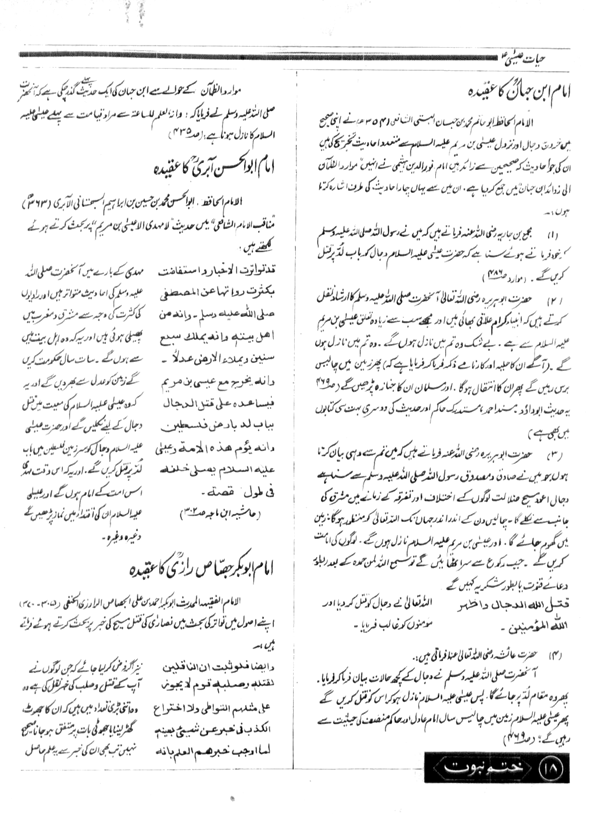 حیات عیسیٰؑ
امام ابن حبانؒ کا عقیدہ
الامام الحافظ ابو حاتم محمد بن حبان البستی الشافعی (م ۳۵۴ھ) نے اپنی صحیح
میں خروج دجال اور نزول عیسیٰ بن مریم علیہ السلام سے متعدد احادیث تخریج کی ہیں
ان کی جو احادیث کہ صحیحین سے زائد ہیں امام نور الدین ہیثمی نے انہیں "موارد الظمآن
الی زوائد ابن حبان" میں جمع کردیا ہے، ان میں سے یہاں چار احادیث کی طرف اشارہ کرتا
ہوں۔
(۱) مجمع بن جاریہ رضی اللہ عنہ فرماتے ہیں کہ میں نے رسول اللہ صلی اللہ علیہ وسلم
کو یہی فرماتے ہوئے سنا ہے کہ حضرت عیسیٰ علیہ السلام دجال کو باب لُدّ پر قتل
کریں گے۔ (موارد ص۴۸۶)
(۲) حضرت ابوہریرہ رضی اللہ تعالیٰ آنحضرت صلی اللہ علیہ وسلم کا ارشاد نقل
کرتے ہیں کہ انبیاء کرام علاتی بھائی ہیں اور مجھے سب سے زیادہ تعلق عیسیٰ بن مریم
علیہ السلام سے ہے۔ بے شک وہ تم میں نازل ہوں گے۔ وہ تم میں نازل ہوں
گے۔ (آگے ان کا حلیہ اور کارنامے ذکر فرما کر فرمایا ہے کہ) پھر زمین میں چالیس
برس رہیں گے پھر ان کا انتقال ہوگا۔ اور مسلمان ان کا جنازہ پڑھیں گے (ص۴۶۹)
یہ حدیث ابو داؤد، مسند احمد، مستدرک حاکم اور حدیث کی دوسری بہت سی کتابوں
میں بھی ہے)
(۳) حضرت ابوہریرہ رضی اللہ عنہ فرماتے ہیں کہ میں تم سے وہی بیان کرتا
ہوں جو میں نے صادق و مصدوق رسول اللہ صلی اللہ علیہ وسلم سے سنا ہے
دجال اعور مسیح ضلالت لوگوں کے اختلاف اور تفرقہ کے زمانے میں مشرق کی
جانب سے نکلے گا۔ چالیس دن کے اندر اندر جہاں تک اللہ تعالیٰ کو منظور ہوگا زمین
میں گھوم جائے گا۔ اور عیسیٰ بن مریم علیہ السلام نازل ہوں گے۔ لوگوں کی امامت
کریں گے۔ جب رکوع سے سر اٹھائیں گے تو سمع اللہ لمن حمدہ کے بعد
دعائے قنوت بالطور شکریہ کہیں گے
قتل الله الدجال واظهر
الله المؤمنين۔
اللہ تعالیٰ نے دجال کو قتل کردیا اور
مومنوں کو غالب فرمایا۔
(۴) حضرت عائشہ رضی اللہ تعالیٰ عنہا فرماتی ہیں:
آنحضرت صلی اللہ علیہ وسلم نے دجال کے کچھ حالات بیان فرما کر فرمایا۔
پھر وہ مقام لُدّ پر جائے گا۔ پس عیسیٰ علیہ السلام نازل ہو کر اس کو قتل کریں گے
پھر عیسیٰ علیہ السلام زمین میں چالیس سال امام عادل اور حاکم منصف کی حیثیت سے
رہیں گے؛ (ص۴۶۹)
موارد الظمآن کے حوالے سے ابن حبان کی ایک حدیث گذر چکی ہے کہ آنحضرت
صلی اللہ علیہ وسلم نے فرمایا کہ: وانہ لعلم للساعۃ سے مراد قیامت سے پہلے عیسیٰ علیہ
السلام کا نازل ہونا ہے؛ (ص۴۳۵)
امام ابوالحسن آبریؒ کا عقیدہ
الامام الحافظ، ابوالحسن محمد بن حسین بن ابراہیم السجستانی الآبری (م۳۶۳ھ)
"مناقب الامام الشافعی" میں حدیث "لا مہدی الا عیسیٰ بن مریم" پر بحث کرتے ہوئے
لکھتے ہیں۔
قد تواترت الاخبار واستفاضت
بكثرت رواتها عن المصطفى
صلى الله عليه وسلم۔ وانه من
اهل بيته وانه يملك سبع
سنين ويملاء الارض عدلاً۔
وانه يخرج مع عيسى بن مريم
فيساعده على قتل الدجال
باب لد بارض فلسطين
وانه يؤم هذه الامة وعيسى
عليه السلام يصلى خلفه
فى طول قصته۔
(حاشیہ ابن ماجہ ص۳۰۲)
مہدی کے بارے میں آنحضرت صلی اللہ
علیہ وسلم کی احادیث متواتر ہیں اور راویوں
کی کثرت کی وجہ سے مشرق و مغرب میں
پھیلی ہوئی ہیں اور یہ کہ وہ اہل بیت میں
سے ہوں گے۔ سات سال حکومت کریں
گے زمین کو عدل سے بھر دیں گے اور یہ
کہ وہ عیسیٰ علیہ السلام کی معیت میں قتل
دجال کے لئے نکلیں گے اور حضرت عیسیٰ
علیہ السلام دجال کو سرزمین فلسطین میں باب
لُدّ پر قتل کریں گے۔ اور یہ کہ اس وقت مہدی
اس امت کے امام ہوں گے اور عیسیٰ
علیہ السلام ان کی اقتدا میں نماز پڑھیں گے
وغیرہ وغیرہ۔
امام ابوبکر جصاص رازیؒ کا عقیدہ
الامام الفقیہ المحدث ابوبکر احمد بن علی الجصاص الرازی الحنفی (۳۰۵-۳۷۰)
اپنے اصول میں تواتر کی بحث میں نصاریٰ کی قتل مسیح کی خبر پر بحث کرتے ہوئے فرماتے
ہیں۔
وايضا فلو ثبت ان الناقلين
لقتله وصلبه قوم لا يجوز
على مثلهم التواطى ولا اختراع
الكذب فى خبر عن شيئى بعينه
لما اوجب خبرهم العلم بانه
نیز اگر فرض کر لیا جائے کہ جن لوگوں نے
آپ کے قتل و صلب کی خبر نقل کی ہے وہ
واقعی بڑی تعداد میں ہیں کہ ان کا جھوٹ
گھڑ لینا یا جھوٹی بات پر متفق ہو جانا صحیح
نہیں تب بھی ان کی خبر سے یہ علم حاصل
ختم نبوت
۱۸